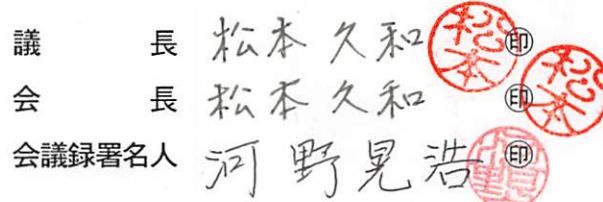 議長 松本久和 ㊞ 松本
会長 松本久和 ㊞ 松本
会議録署名人 河野晃浩 ㊞